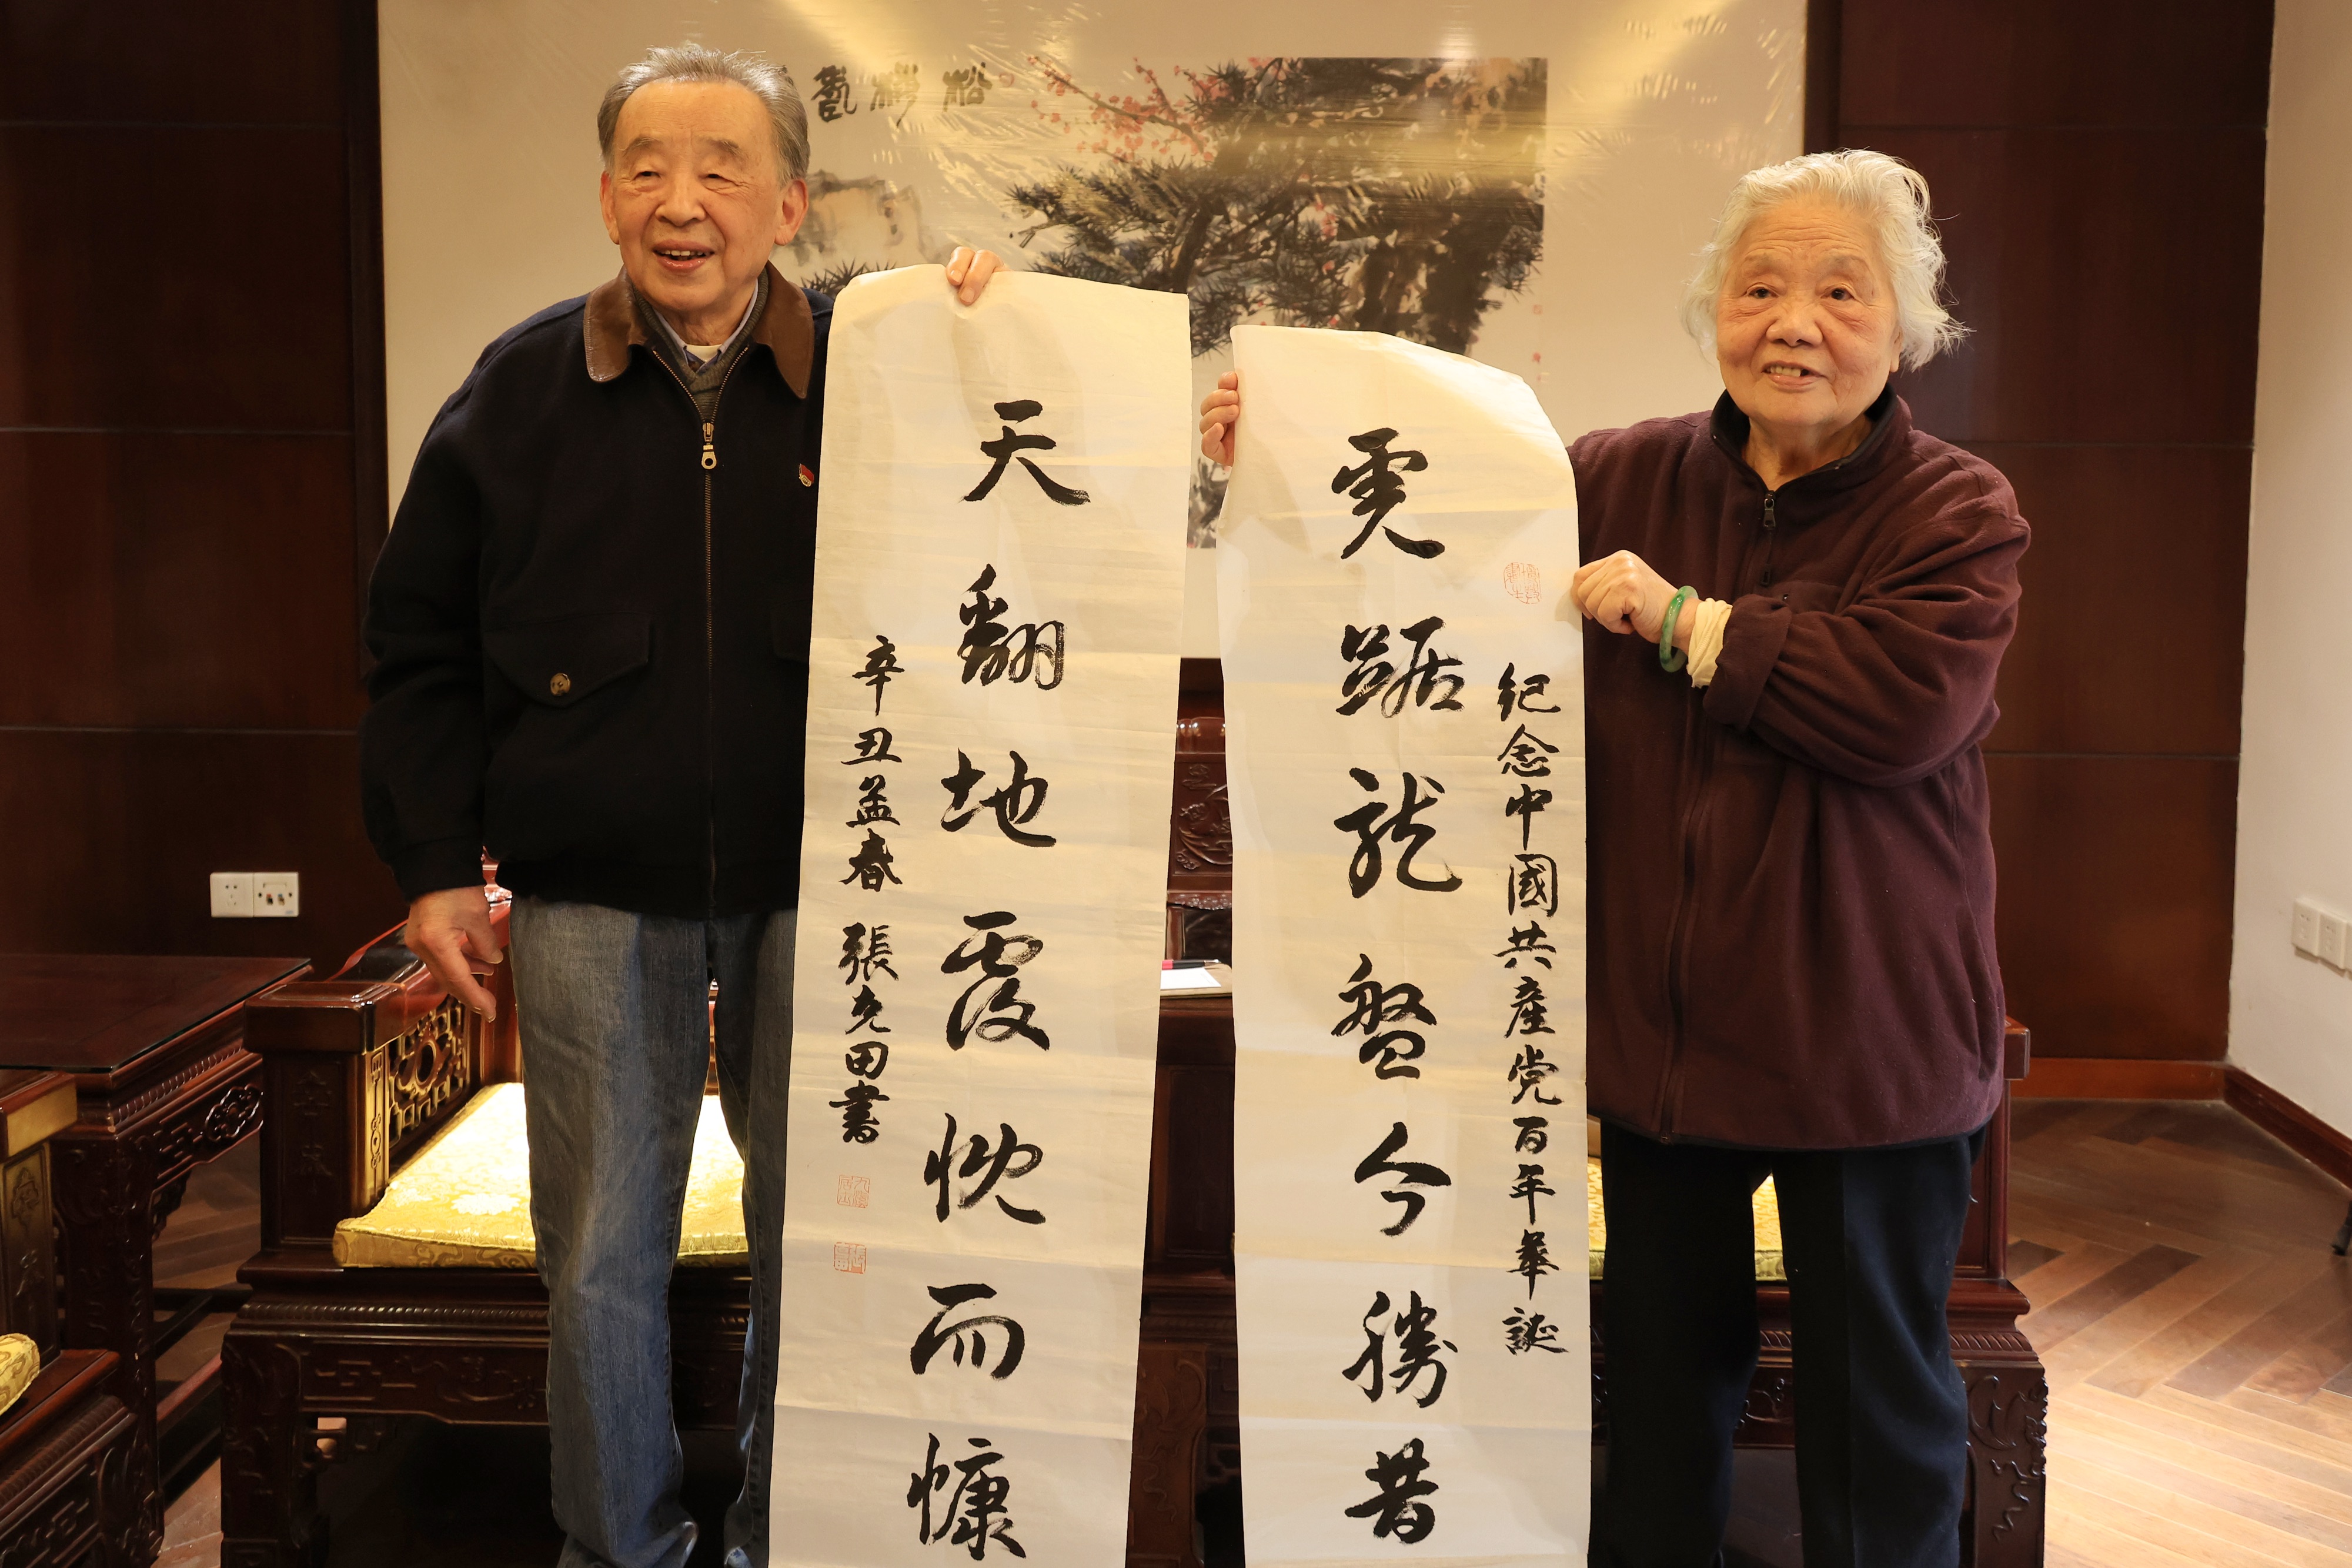 紀念中國共産党百年華誕
虎踞龍盤今勝昔
天翻地覆慨而慷
辛丑孟春 張克田書